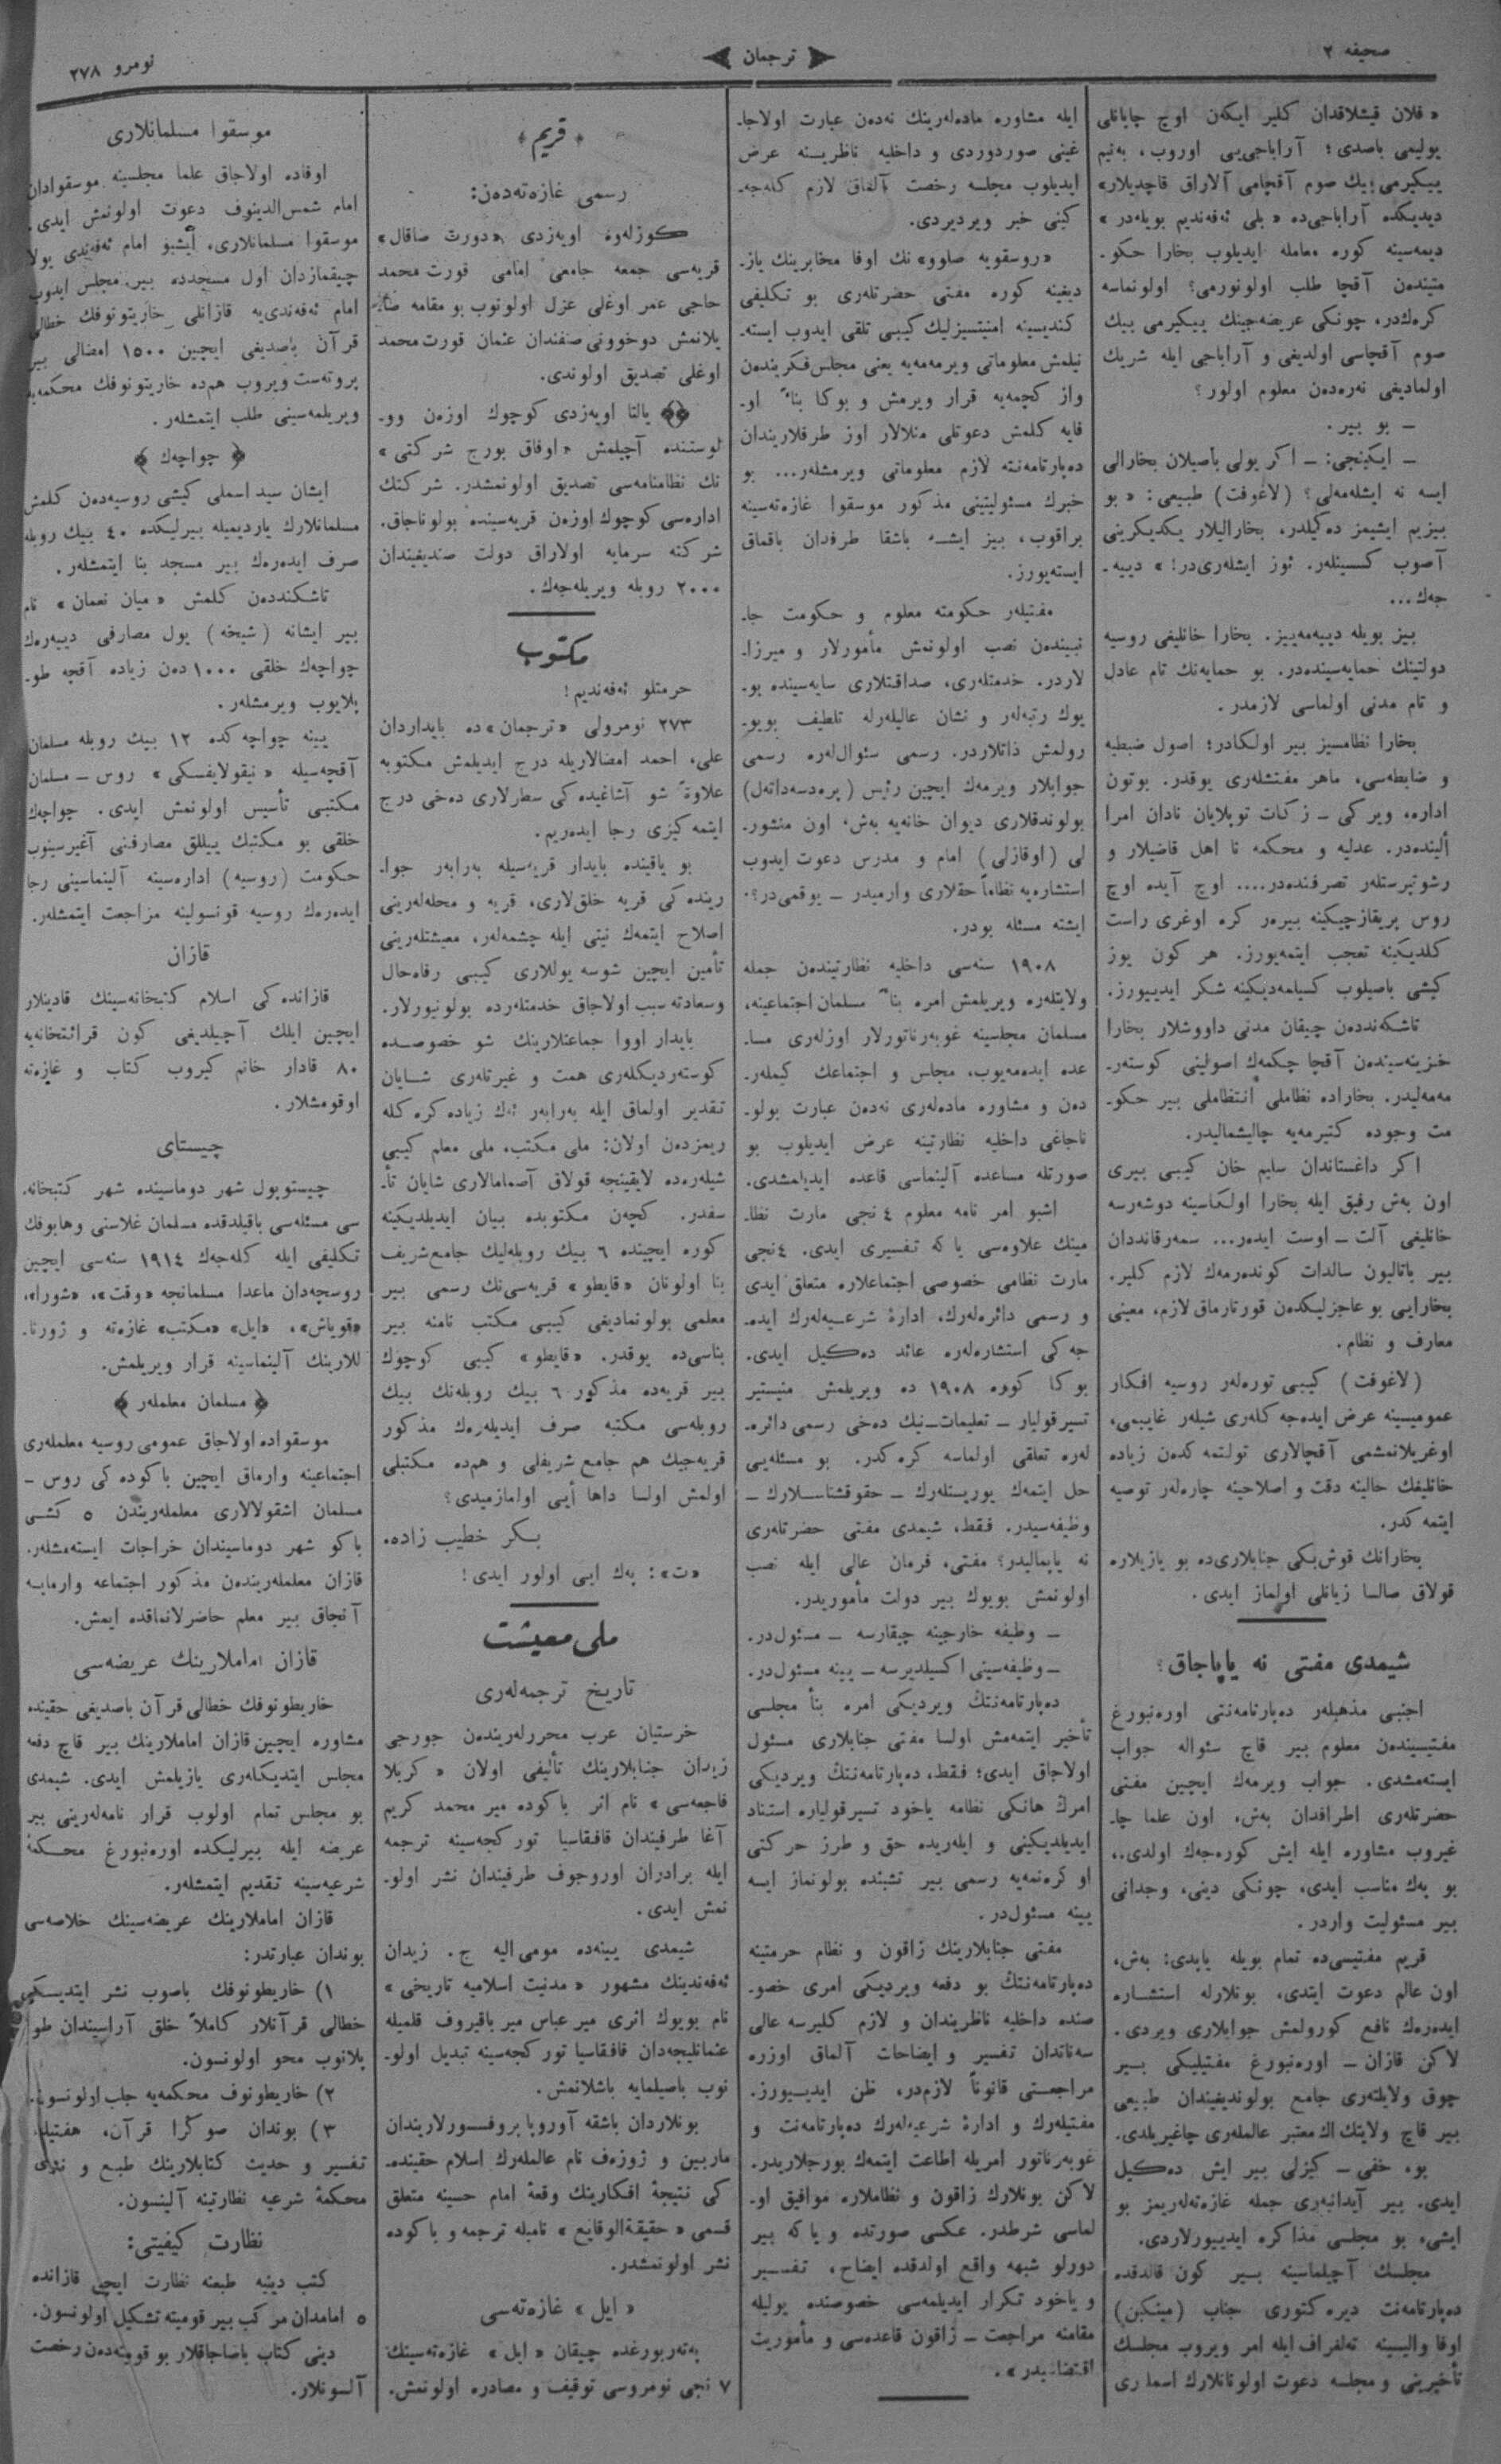 صحیفه ٢
ترجمان
نومرو ٢٧٨
« فلان قیشلاقدان کلیر ایکەن اوچ چاپانلی
یولیمی باصدی؛ آراباجی‌یی اوروب، بەنیم
ییکیرمی بیك صوم آقچامی آلاراق قاچدیلار»
دیدیکده آراباجی‌ده « بلی ئەفەندیم بویله‌در »
دیمه‌سینه کوره معامله ایدیلوب بخارا حکو-
متیندەن آقچا طلب اولونورمی؟ اولونماسه
کرەك‌در، چونکی عریضه‌جینك ییکیرمی بیك
صوم آقچاسی اولدیغی و آراباجی ایله شریك
اولمادیغی نەرەدەن معلوم اولور؟
ـ بو بیر.
ـ ایکینجی: ـ اکر یولی باصیلان بخارالی
ایسه نه ایشله‌مەلی؟ (لاغوفت) طبیعی: « بو
بیزیم ایشیمز دەکیلدر، بخارالیلار یکدیکرینی
آصوب کسسینلەر. ئوز ایشلەری‌در! » دییه-
جەك...
بیز بویله دییەمەییز. بخارا خانلیغی روسیه
دولتینك حمایه‌سیندەدر. بو حمایەنك تام عادل
و تام مدنی اولماسی لازمدر.
بخارا نظامسیز بیر اولکادر؛ اصول ضبطیه
و ضابطەسی، ماهر مفتشلەری یوقدر. بوتون
اداره، ویرکی ـ زکات توپلایان نادان امرا
ألیندەدر. عدلیه و محکمه نا اهل قاضیلار و
رشوتپرستلەر تصرفندەدر.... اوچ آیده اوچ
روس پریقازچیکینه بیرەر کره اوغری راست
کلدیکینه تعجب ایتمەیورز. هر کون یوز
کیشی باصیلوب کسیلمه‌دیکینه شکر ایدییورز.
تاشکەنددەن چیقان مدنی داووشلار بخارا
خزینه‌سیندەن آقچا چکمەك اصولینی کوستەر-
مەمەلیدر. بخاراده نظاملی انتظاملی بیر حکو-
مت وجوده کتیرمەیه چالیشمالیدر.
اکر داغستاندان سلیم خان کیبی بیری
اون بەش رفیق ایله بخارا اولکاسینه دوشەرسه
خانلیغی آلت ـ اوست ایدەر... سمەرقانددان
بیر باتالیون سالدات کوندەرمەك لازم کلیر.
بخارایی بو عاجزلیکدەن قورتارماق لازم، معینی
معارف و نظام.
(لاغوفت) کیبی تورەلەر روسیه افکار
عمومیسینه عرض ایدەجەکلەری شیلەر غایبمی،
اوغریلانمشمی آقچالاری تولتمەکدەن زیاده
خانلیغك حالینه دقت و اصلاحینه چارەلەر توصیه
ایتمەکدر.
بخارانك قوش‌بکی جنابلاری‌ده بو یازیلاره
قولاق صالسا زیانلی اولماز ایدی.
شیمدی مفتی نه یاپاجاق؟
اجنبی مذهبلەر دەپارتامەنتی اورەنبورغ
مفتیسیندەن معلوم بیر قاچ سئواله جواب
ایستەمشدی. جواب ویرمەك ایچین مفتی
حضرتلەری اطرافدان بەش، اون علما چا-
غیروب مشاوره ایله ایش کورەجەك اولدی.
بو پەك مناسب ایدی، چونکی دینی، وجدانی
بیر مسئولیت واردر.
قریم مفتیسی‌ده تمام بویله یاپدی: بەش،
اون عالم دعوت ایتدی، بونلارله استشاره
ایدەرەك نافع کورولمش جوابلاری ویردی.
لاکن قازان ـ اورەنبورغ مفتیلیکی بییر
چوق ولایتلەری جامع بولوندیغیندان طبیعی
بیر قاچ ولایتك اك معتبر عالملەری چاغیریلدی.
بو، خفی ـ کیزلی بیر ایش دەکیل
ایدی. بیر آیدانبەری جمله غازەتەلەریمز بو
ایشی، بو مجلسی مذاکره ایدییورلاردی.
مجلسك آچیلماسینه بییر کون قالدقده
دەپارتامەنت دیرەکتوری جناب (مینکین)
اوفا والیسینه تەلغراف ایله امر ویروب مجلسك
تأخیرینی و مجلسه دعوت اولونانلارك اسماری
ایله مشاوره مادەلەرینك نەدەن عبارت اولاجا-
غینی صوردوردی و داخلیه ناظرینه عرض
ایدیلوب مجلسه رخصت آلغاق لازم کلەجە-
کینی خبر ویردیردی.
«روسقویه صلوو» نك اوفا مخابرینك یاز-
دیغینه کوره مفتی حضرتلەری بو تکلیفی
کندیسینه امنیتسیزلیك کیبی تلقی ایدوب ایستە-
نیلمش معلوماتی ویرمەمەیه یعنی مجلس‌فکریندەن
واز کچمەیه قرار ویرمش و بوکا بناءً او-
فایه کلمش دعوتلی منلالار اوز طرفلاریندان
دەپارتامەنته لازم معلوماتی ویرمشلەر... بو
خبرك مسئولیتینی مذکور موسقوا غازەتەسینه
براقوب، بیز ایشه باشقا طرفدان باقماق
ایستەیورز.
مفتیلەر حکومته معلوم و حکومت جا-
نبیندەن نصب اولونمش مأمورلار و میرزا-
لاردر. خدمتلەری، صداقتلاری سایەسیندە بو-
یوك رتبەلەر و نشان عالیلەرله تلطیف بویو-
رولمش ذاتلاردر. رسمی سئوال‌لەرە رسمی
جوابلار ویرمەك ایچین رئیس (پرەدسەداتەل)
بولوندقلاری دیوان خانەیه بەش، اون منشور-
لی (اوقازلی) امام و مدرس دعوت ایدوب
استشارەیه نظاماً حقلاری وارمیدر ـ یوقمی‌در؟.
ایشته مسئله بودر.
١٩٠٨ سنەسی داخلیه نظارتیندەن جمله
ولایتلەره ویریلمش امره بناءً مسلمان اجتماعینه،
مسلمان مجلسینه غوبەرناتورلار اوزلەری مسا-
عده ایدەمەیوب، مجلس و اجتماعك کیملەر-
دەن و مشاوره مادەلەری نەدەن عبارت بولو-
ناجاغی داخلیه نظارتینه عرض ایدیلوب بو
صورتله مساعده آلینماسی قاعده ایدیلمشدی.
اشبو امر نامه معلوم ٤ نجی مارت نظا-
مینك علاوەسی یاکه تفسیری ایدی. ٤ نجی
مارت نظامی خصوصی اجتماعلاره متعلق ایدی
و رسمی دائرەلەرك، ادارهٔ شرعیەلەرك ایدە-
جەکی استشارەلەره عائد دەکیل ایدی.
بوکا کووه ١٩٠٨ ده ویریلمش منیستیر
تسیرقولیار ـ تعلیمات‌ـ‌نیك دەخی رسمی دائرە-
لەره تعلقی اولماسه کرەکدر. بو مسئلەیی
حل ایتمەك یوریستلەرك ـ حقوقشناسلارك ـ
وظیفەسیدر. فقط، شیمدی مفتی حضرتلەری
نه یاپمالیدر؟ مفتی، فرمان عالی ایله نصب
اولونمش بویوك بیر دولت مأموریدر.
ـ وظیفه خارجینه چیقارسه ـ مسئول‌در.
ـ وظیفەسینی اکسیلدیرسه ـ یینه مسئول‌در.
دەپارتامەنتك ویردیکی امره بناً مجلسی
تأخیر ایتمەمش اولسا مفتی جنابلاری مسئول
اولاجاق ایدی؛ فقط، دەپارتامەنتك ویردیکی
امرك هانکی نظامه یاخود تسیرقولیاره استناد
ایدیلدیکینی و ایلەریده حق و طرز حرکتی
اوکرەنمەیه رسمی بیر تشبثده بولونماز ایسه
یینه مسئول‌در.
مفتی جنابلارینك زاقون و نظام حرمتینه
دەپارتامەنتك بو دفعه ویردیکی امری خصو-
صنده داخلیه ناظریندان و لازم کلیرسه عالی
سەناتدان تفسیر و ایضاحات آلماق اوزره
مراجعتی قانوناً لازم‌در، ظن ایدییورز.
مفتیلەرك و ادارهٔ شرعیەلەرك دەپارتامەنت و
غوبەرناتور امریله اطاعت ایتمەك بورجلاریدر.
لاکن بونلارك زاقون و نظاملاره موافیق او-
لماسی شرطدر. عکسی صورتده و یاکه بیر
دورلو شبهه واقع اولدقده ایضاح، تفسیر
و یاخود تکرار ایدیلمەسی خصوصنده یولیله
مقامنه مراجعت ـ زاقون قاعدەسی و مأموریت
اقتضاسیدر».
﴿ قریم ﴾
رسمی غازەتەدەن:
کوزلەوه اویەزدی «دورت صاقال»
قریەسی جمعه جامعی امامی قورت‌محمد
حاجی عمر اوغلی عزل اولونوب بو مقامه صا-
یلانمش دوخوونی صنفندان عثمان قورت‌محمد
اوغلی تصدیق اولوندی.
یالتا اویەزدی کوچوك اوزەن وو-
لوستنده آچیلمش «اوفاق بورج شرکتی»
نك نظامنامەسی تصدیق اولونمشدر. شرکتك
ادارەسی کوچوك اوزەن قریەسینده بولوناجاق.
شرکته سرمایه اولاراق دولت صندیغیندان
٢٠٠٠ روبله ویریلەجەك.
مکتوب
حرمتلو ئەفەندیم!
٢٧٣ نومرولی «ترجمان»ده بایداردان
علی، احمد امضالاریله درج ایدیلمش مکتوبه
علاوةً شو آشاغیدەکی سطرلاری دەخی درج
ایتمەکیزی رجا ایدەریم.
بو یاقینده بایدار قریەسیله بەرابەر جوا-
ریندەکی قریه خلق‌لاری، قریه و محلەلەرینی
اصلاح ایتمەك نیتی ایله چشمەلەر، معیشتلەرینی
تأمین ایچین شوسه یوللاری کیبی رفاه‌حال
وسعادته سبب اولاجاق خدمتلەرده بولونیورلار.
بایدار اووا جماعتلارینك شو خصوصده
کوستەردیکلەری همت و غیرتلەری شایان
تقدیر اولماق ایله بەرابەر ئەك زیاده کرەکلە
ریمزدەن اولان: ملی مکتب، ملی معلم کیبی
شیلەره‌ده لایقینجه قولاق آصمامالاری شایان تأ-
سفدر. کچەن مکتوبده بیان ایدیلدیکینه
کوره ایچینده ٦ بیك روبلەلیك جامع‌شریف
بنا اولونان «قایطو» قریەسی‌نك رسمی بیر
معلمی بولونمادیغی کیبی مکتب نامنه بیر
بناسی‌ده یوقدر. «قایطو» کیبی کوچوك
بیر قریەده مذکور ٦ بیك روبلەنك بیك
روبلەسی مکتبه صرف ایدیلەرەك مذکور
قریەجیك هم جامع شریفلی و هم‌ده مکتبلی
اولمش اولسا داها أیی اولمازمیدی؟
بکر خطیب زاده.
«ت»: پەك ایی اولور ایدی!
ملی معیشت
تاریخ ترجمەلەری
خرستیان عرب محررلەریندەن جورجی
زیدان جنابلارینك تألیفی اولان « کربلا
فاجعەسی » نام اثر باکوده میر محمد کریم
آغا طرفیندان قافقاسیا تورکجەسینه ترجمه
ایله برادران اوروجوف طرفیندان نشر اولو-
نمش ایدی.
شیمدی یینەده مومی الیه ج. زیدان
ئەفەندینك مشهور «مدنیت اسلامیه تاریخی»
نام بویوك اثری میر عباس میر باقیروف قلمیله
عثمانلیجەدان قافقاسیا تورکجەسینه تبدیل اولو-
نوب باصیلمایه باشلانمش.
بونلاردان باشقه آوروپا پروفسورلاریندان
ماربین و ژوزەف نام عالملەرك اسلام حقیندە-
کی نتیجهٔ افکارینك وقعهٔ امام حسینه متعلق
قسمی « حقیقةالوقایع » نامیله ترجمه و باکوده
نشر اولونمشدر.
« ایل » غازەتەسی
پەتەربورغده چیقان « ایل » غازەتەسینك
٧ نجی نومروسی توقیف و مصادره اولونمش.
موسقوا مسلمانلاری
اوفاده اولاجاق علما مجلسینه موسقوادان
امام شمس‌الدینوف دعوت اولونمش ایدی.
موسقوا مسلمانلاری، ایشبو امام ئەفەندی یولا
چیقمازدان اول مسجدده بیر مجلس ایدوب
امام ئەفەندی‌یه قازانلی خاریتونوفك خطالی
قرآن باصدیغی ایچین ١٥٠٠ امضالی بیر
پروتەست ویروب هم‌ده خاریتونوفك محکمەیه
ویریلمەسینی طلب ایتمشلەر.
﴿ چواچەك ﴾
ایشان سید اسملی کیشی روسیەدەن کلمش
مسلمانلارك یاردیمیله بیرلیکده ٤٠ بیك روبله
صرف ایدەرەك بیر مسجد بنا ایتمشلەر.
تاشکنددەن کلمش «میان نعمان» نام
بیر ایشانه (شیخه) یول مصارفی دییەرەك
چواچەك خلقی ١٠٠٠دەن زیاده آقچه طو-
پلایوب ویرمشلەر.
یینه چواچەکده ١٢ بیك روبله مسلمان
آقچەسیله «نیقولایفسکی» روس ـ مسلمان
مکتبی تأسیس اولونمش ایدی. چواچەك
خلقی بو مکتبك ییللق مصارفنی آغیرسینوب
حکومت (روسیه) ادارەسینه آلینماسینی رجا
ایدەرەك روسیه قونسولینه مراجعت ایتمشلەر.
قازان
قازاندەکی اسلام کتبخانەسینك قادینلار
ایچین ایلك آچیلدیغی کون قرائتخانەیه
٨٠ قادار خانم کیروب کتاب و غازەته
اوقومشلار.
چیستای
چیستوپول شهر دوماسینده شهر کتبخانه-
سی مسئلەسی باقیلدقده مسلمان غلاسنی وهابوفك
تکلیفی ایله کلەجەك ١٩١٤ سنەسی ایچین
روسچەدان ماعدا مسلمانجه «وقت»، «شورا»،
«قویاش»، «ایل» «مکتب» غازەته و ژورنا-
للارینك آلینماسینه قرار ویریلمش.
﴿ مسلمان معلملەر ﴾
موسقواده اولاجاق عمومی روسیه معلملەری
اجتماعینه وارماق ایچین باکودەکی روس ـ
مسلمان اشقولالاری معلملەریندن ٥ کشی
باکو شهر دوماسیندان خراجات ایستەمشلەر.
قازان معلملەریندەن مذکور اجتماعه وارمایه
آنجاق بیر معلم حاضرلانماقده ایمش.
قازان اماملارینك عریضەسی
خاریطونوفك خطالی قرآن باصدیغی حقینده
مشاوره ایچین قازان اماملارینك بیر قاچ دفعه
مجلس ایتدیکلەری یازیلمش ایدی. شیمدی
بو مجلس تمام اولوب قرار نامەلەرینی بیر
عریضه ایله بیرلیکده اورەنبورغ محکمهٔ
شرعیەسینه تقدیم ایتمشلەر.
قازان اماملارینك عریضەسینك خلاصەسی
بوندان عبارتدر:
١) خاریطونوفك باصوب نشر ایتدیکی
خطالی قرآنلار کاملاً خلق آراسیندان طو
پلانوب محو اولونسون.
٢) خاریطونوف محکمەیه جلب اولونسون.
٣) بوندان صوکرا قرآن، هفتیك
تفسیر و حدیث کتابلارینك طبع و نشری
محکمهٔ شرعیه نظارتینه آلینسون.
نظارت کیفیتی:
کتب دینیه طبعنه نظارت ایچین قازانده
٥ امامدان مرکب بیر قومیته تشکیل اولونسون.
دینی کتاب باصاجاقلار بو قومیتەدەن رخصت
آلسونلار.